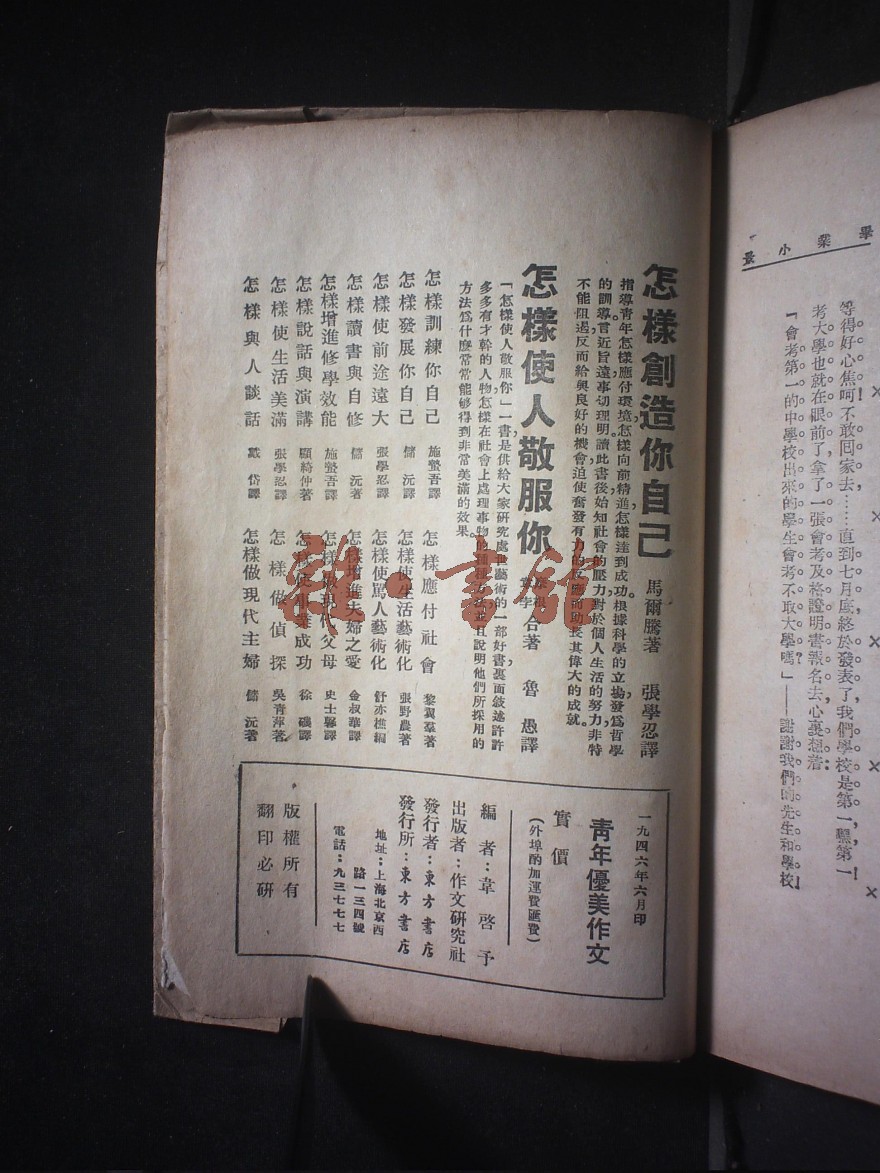 畢業小景
等得好心焦呵！不敢回家去……直到七月底，終於發表了，我們學校是第一，嘿第一！
考大學也就在眼前了，拿了一張會考及格證明書報名去，心裏想着：
「會考第一的中學校出來的學生會考不取大學嗎？」——謝謝我們的先生和學校」
怎樣創造你自己 馬爾騰著 張學忍譯
指導青年怎樣應付環境，怎樣向前精進，怎樣達到成功。根據科學的立場，發爲哲學
的訓導，言近旨遠，事切理明。讀此書後，始知社會的壓力，對於個人生活的努力，非特
不能阻遏，反而給與良好的機會，迫使奮發有力的反應，而助長其偉大的成就。
怎樣使人敬服你 合著 魯愚譯
「怎樣使人敬服你」一書，是供給大家研究處世藝術的一部好書，裏面敘述許許
多多有才幹的人物，怎樣在社會上處理事物的種種方法，並且說明他們所採用的
方法，爲什麼常常能够得到非常美滿的效果。
怎樣訓練你自己 施螢吾譯 怎樣應付社會 黎翼羣著
怎樣發展你自己 儲沅譯 怎樣使生活藝術化 張野農著
怎樣使前途遠大 張學忍譯 怎樣使罵人藝術化 舒亦樵編
怎樣讀書與自修 儲沅著 怎樣增進夫婦之愛 金叔華譯
怎樣增進修學效能 施螢吾譯 怎樣做現代父母 史士馨譯
怎樣說話與演講 顧綺仲著 怎樣使事業成功 徐礪譯
怎樣使生活美滿 張學忍譯 怎樣做偵探 吳青萍著
怎樣與人談話 戴岱譯 怎樣做現代主婦 儲沅著
一九四六年六月印
青年優美作文
實價
（外埠酌加運費匯費）
編者：韋啓予
出版者：作文研究社
發行者：東方書店
發行所：東方書店
地址：上海北京西
路一三四號
電話：九三七七七
版權所有
翻印必研